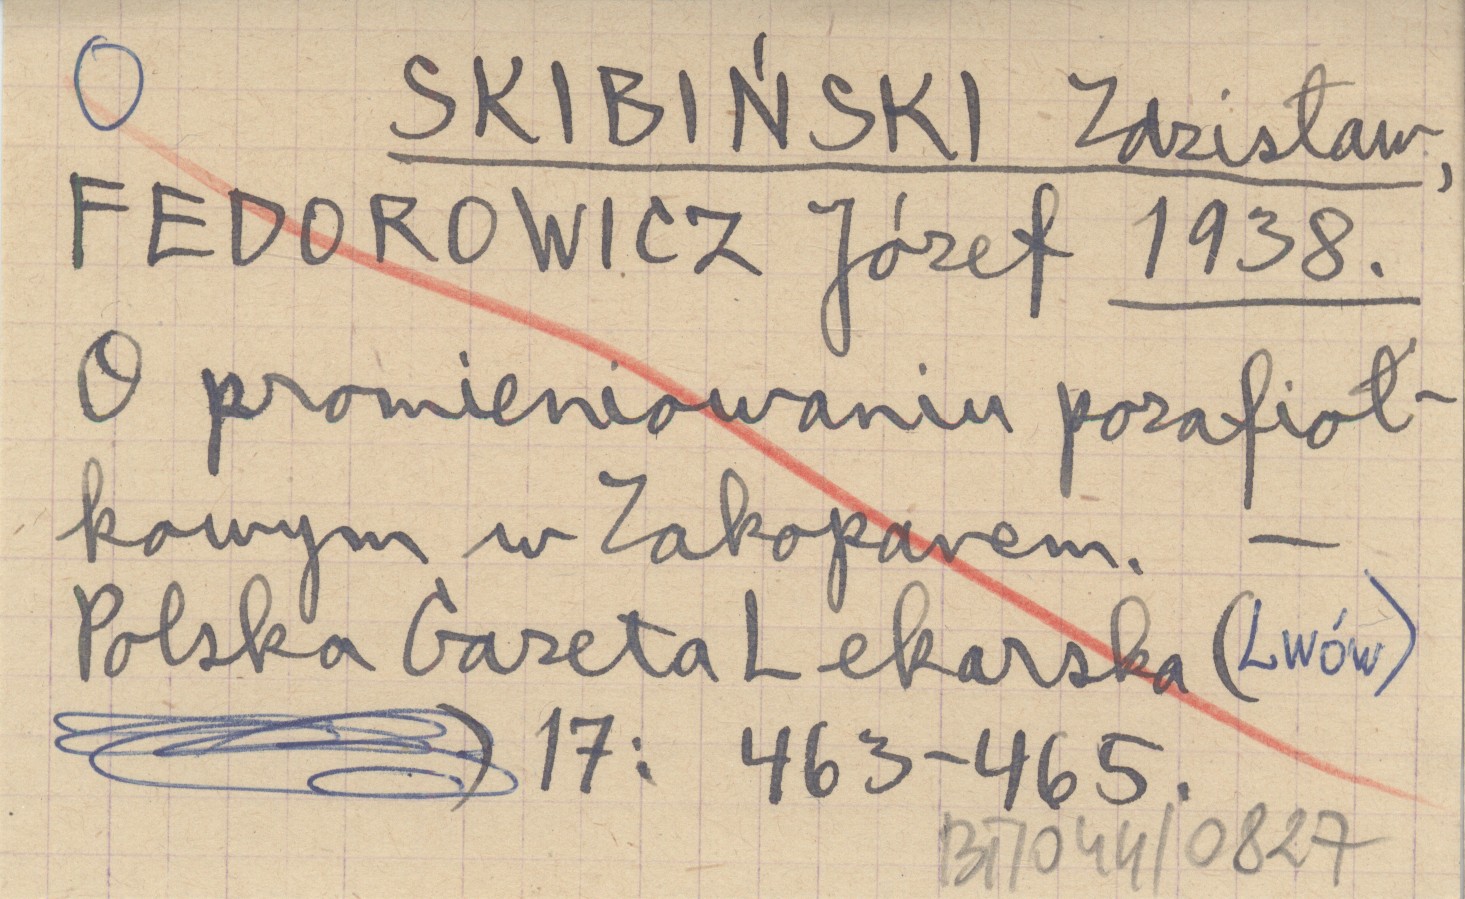 O SKIBIŃSKI Zdzisław,
FEDOROWICZ Józef 1938.
O promieniowaniu pozafioł-
kowym w Zakopanem. —
Polska Gazeta Lekarska (Lwów)
) 17: 463-465.
BT/044/0827